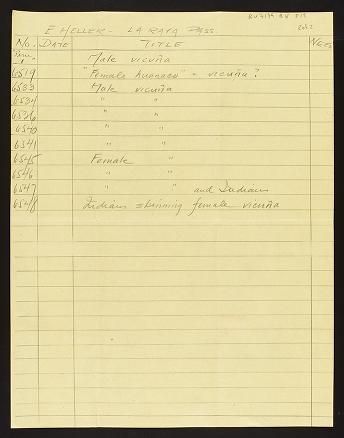 E HELLER - LA RAYA PASS.
No. DATE TITLE
Male vicuña
6519 "Female huanaco" - vicuña?
6533 Male vicuña
6534 " "
6536 " "
6540 " "
6541 " "
6545 Female "
6546 " "
6547 " " and Indians
6548 Indians skinning female vicuña